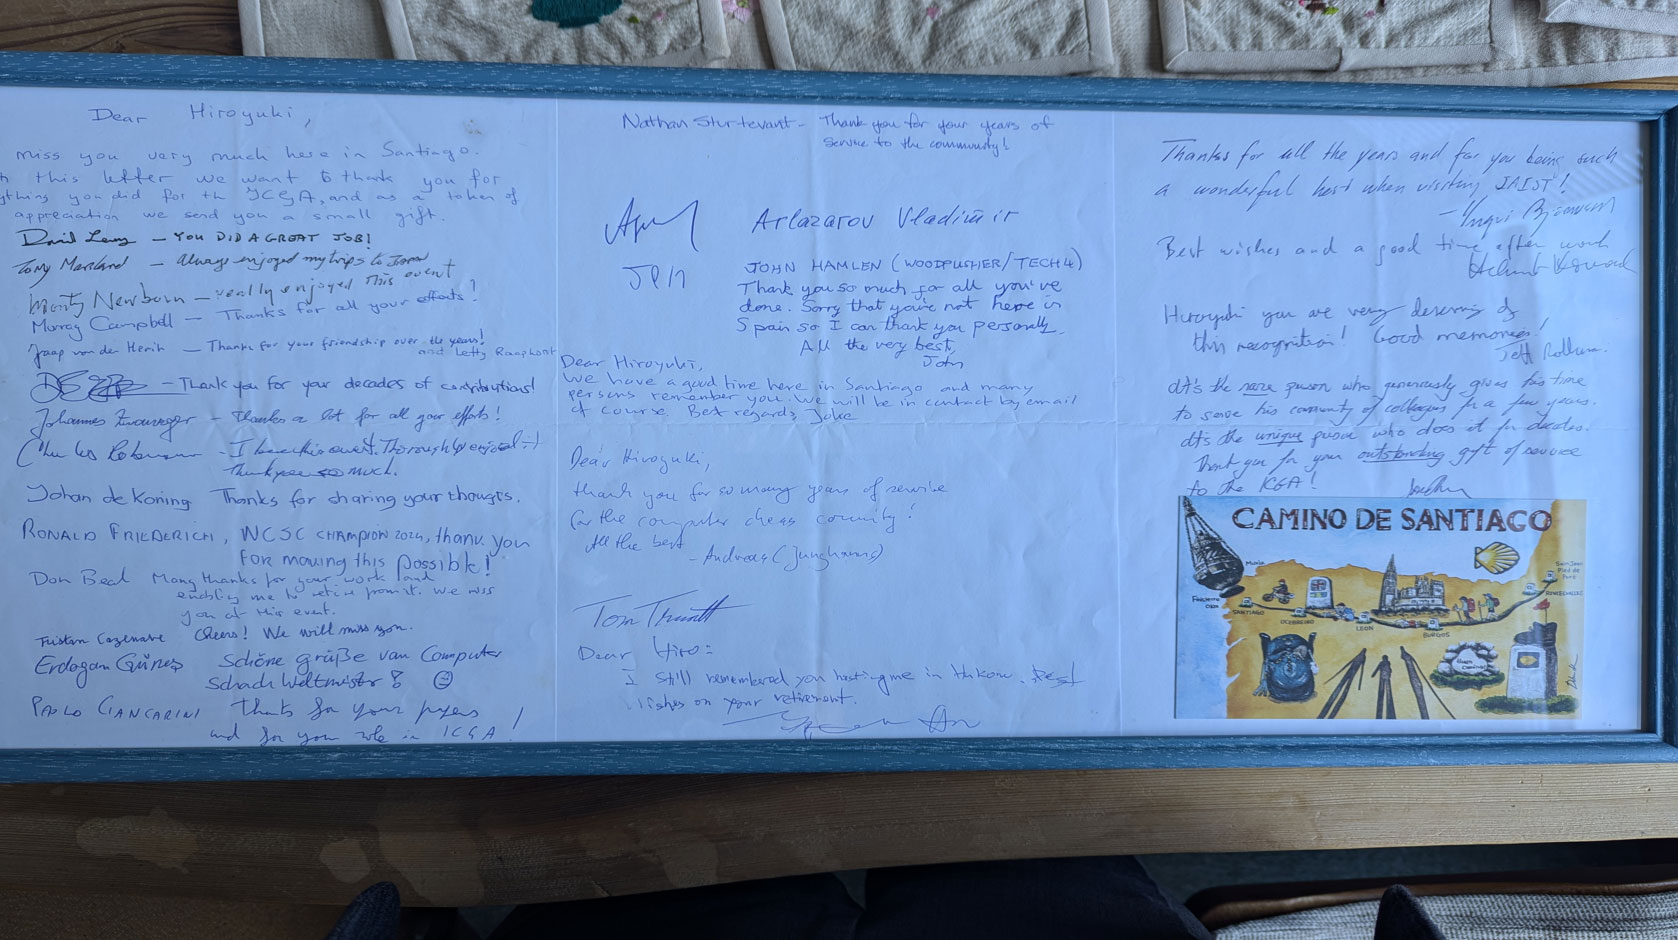 Dear Hiroyuki,
miss you very much here in Santiago.
this letter we want to thank you for
ything you did for the ICGA, and as a token of
appreciation we send you a small gift.
David Levy - YOU DID A GREAT JOB!
Tony Marsland - Always enjoyed my trips to
Monty Newborn - really enjoyed this event
Murray Campbell - Thanks for all your efforts!
Jaap van den Herik - Thanks for your friendship over the years!
and Letty Raaphorst
- Thank you for your decades of contributions!
Johannes Zwanzger - thanks a lot for all your efforts!
- I love this event. Thoroughly enjoyed :-)
Thank you so much.
Johan de Koning Thanks for sharing your thoughts.
RONALD FRIEDERICH, WCSC CHAMPION 2024, thank you
FOR making this possible!
Don Beal Many thanks for your work and
enabling me to retire from it. We miss
you at this event.
Tristan Cazenave Cheers! We will miss you.
Erdogan Günes Schöne Grüße van Computer
Schach Weltmeister! ☺
PAOLO CIANCARINI thanks for your papers
and for your role in ICGA!
Nathan Sturtevant - Thank you for your years of
service to the community!
Arlazarov Vladimir
JOHN HAMLEN (WOODPUSHER/TECH4)
Thank you so much for all you've
done. Sorry that you're not here in
Spain so I can thank you personally.
All the very best,
John
Dear Hiroyuki,
We have a good time here in Santiago and many
persons remember you. We will be in contact by email
of course. Best regards, Joke
Dear Hiroyuki,
thank you for so many years of service
for the computer chess comunity!
All the best
- Andreas (Junghanns)
Tom
Dear Hiro:
I still remembered you hosting me in . Best
wishes on your retirement.
Thanks for all the years and for you being such
a wonderful host when visiting JAIST!
- Yngvi Björnsson
Best wishes and a good time after work
Helmut
Hiroyuki you are very deserving of
this recognition! Good memories!
Jeff Rollason.
It's the rare person who generously gives his time
to serve his community of colleagues for a few years.
It's the unique person who does it for decades.
Thank you for your outstanding gift of service
to the ICGA!
CAMINO DE SANTIAGO
Muxia
Saint Jean
Pied de
Port
RONCESVALLES
SANTIAGO
OCEBREIRO
LEON
BURGOS